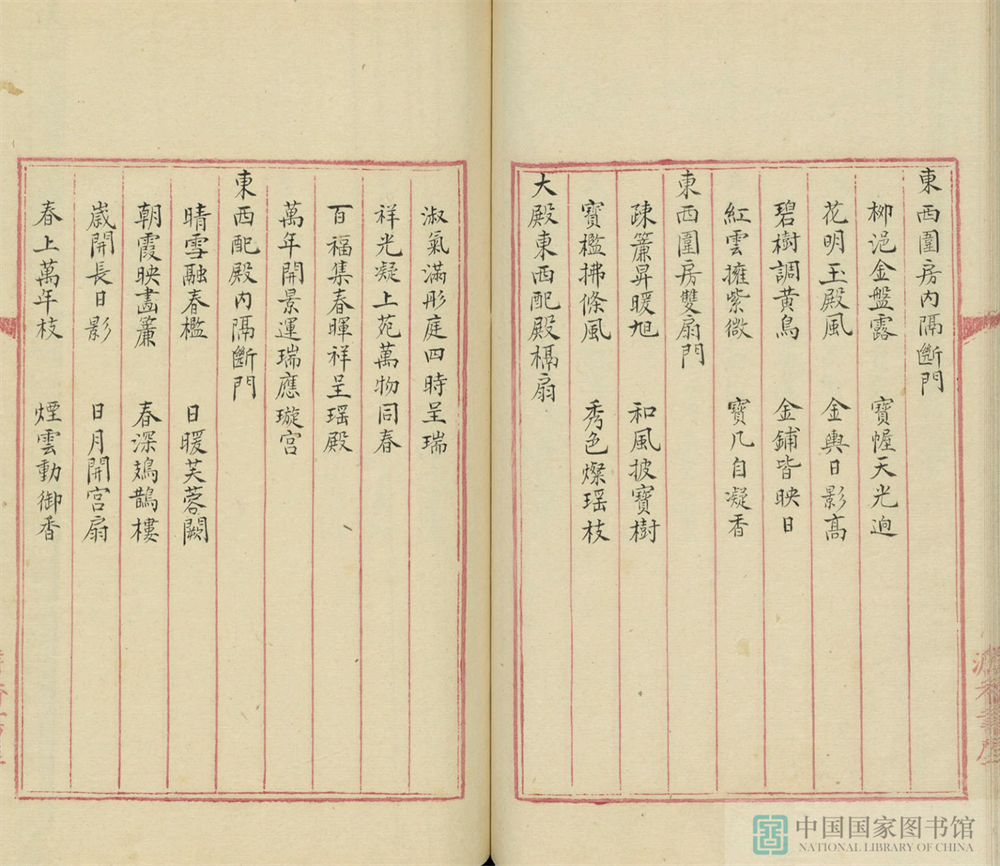 東西圍房內隔斷門
柳浥金盤露 寶幄天光迥
花明玉殿風 金輿日影高
碧樹調黃鳥 金鋪皆映日
紅雲擁紫微 寶几自凝香
東西圍房雙扇門
疎簾昇暖旭 和風披寶樹
寶檻拂條風 秀色燦瑶枝
大殿東西配殿槅扇
淑氣滿彤庭四時呈瑞
祥光凝上苑萬物同春
百福集春暉祥呈瑶殿
萬年開景運瑞應璇宫
東西配殿內隔斷門
晴雪融春檻 日暖芙蓉闕
朝霞映畫簾 春深鳷鵲樓
嵗開長日影 日月開宫扇
春上萬年枝 煙雲動御香
中国国家图书馆
NATIONAL LIBRARY OF CHINA